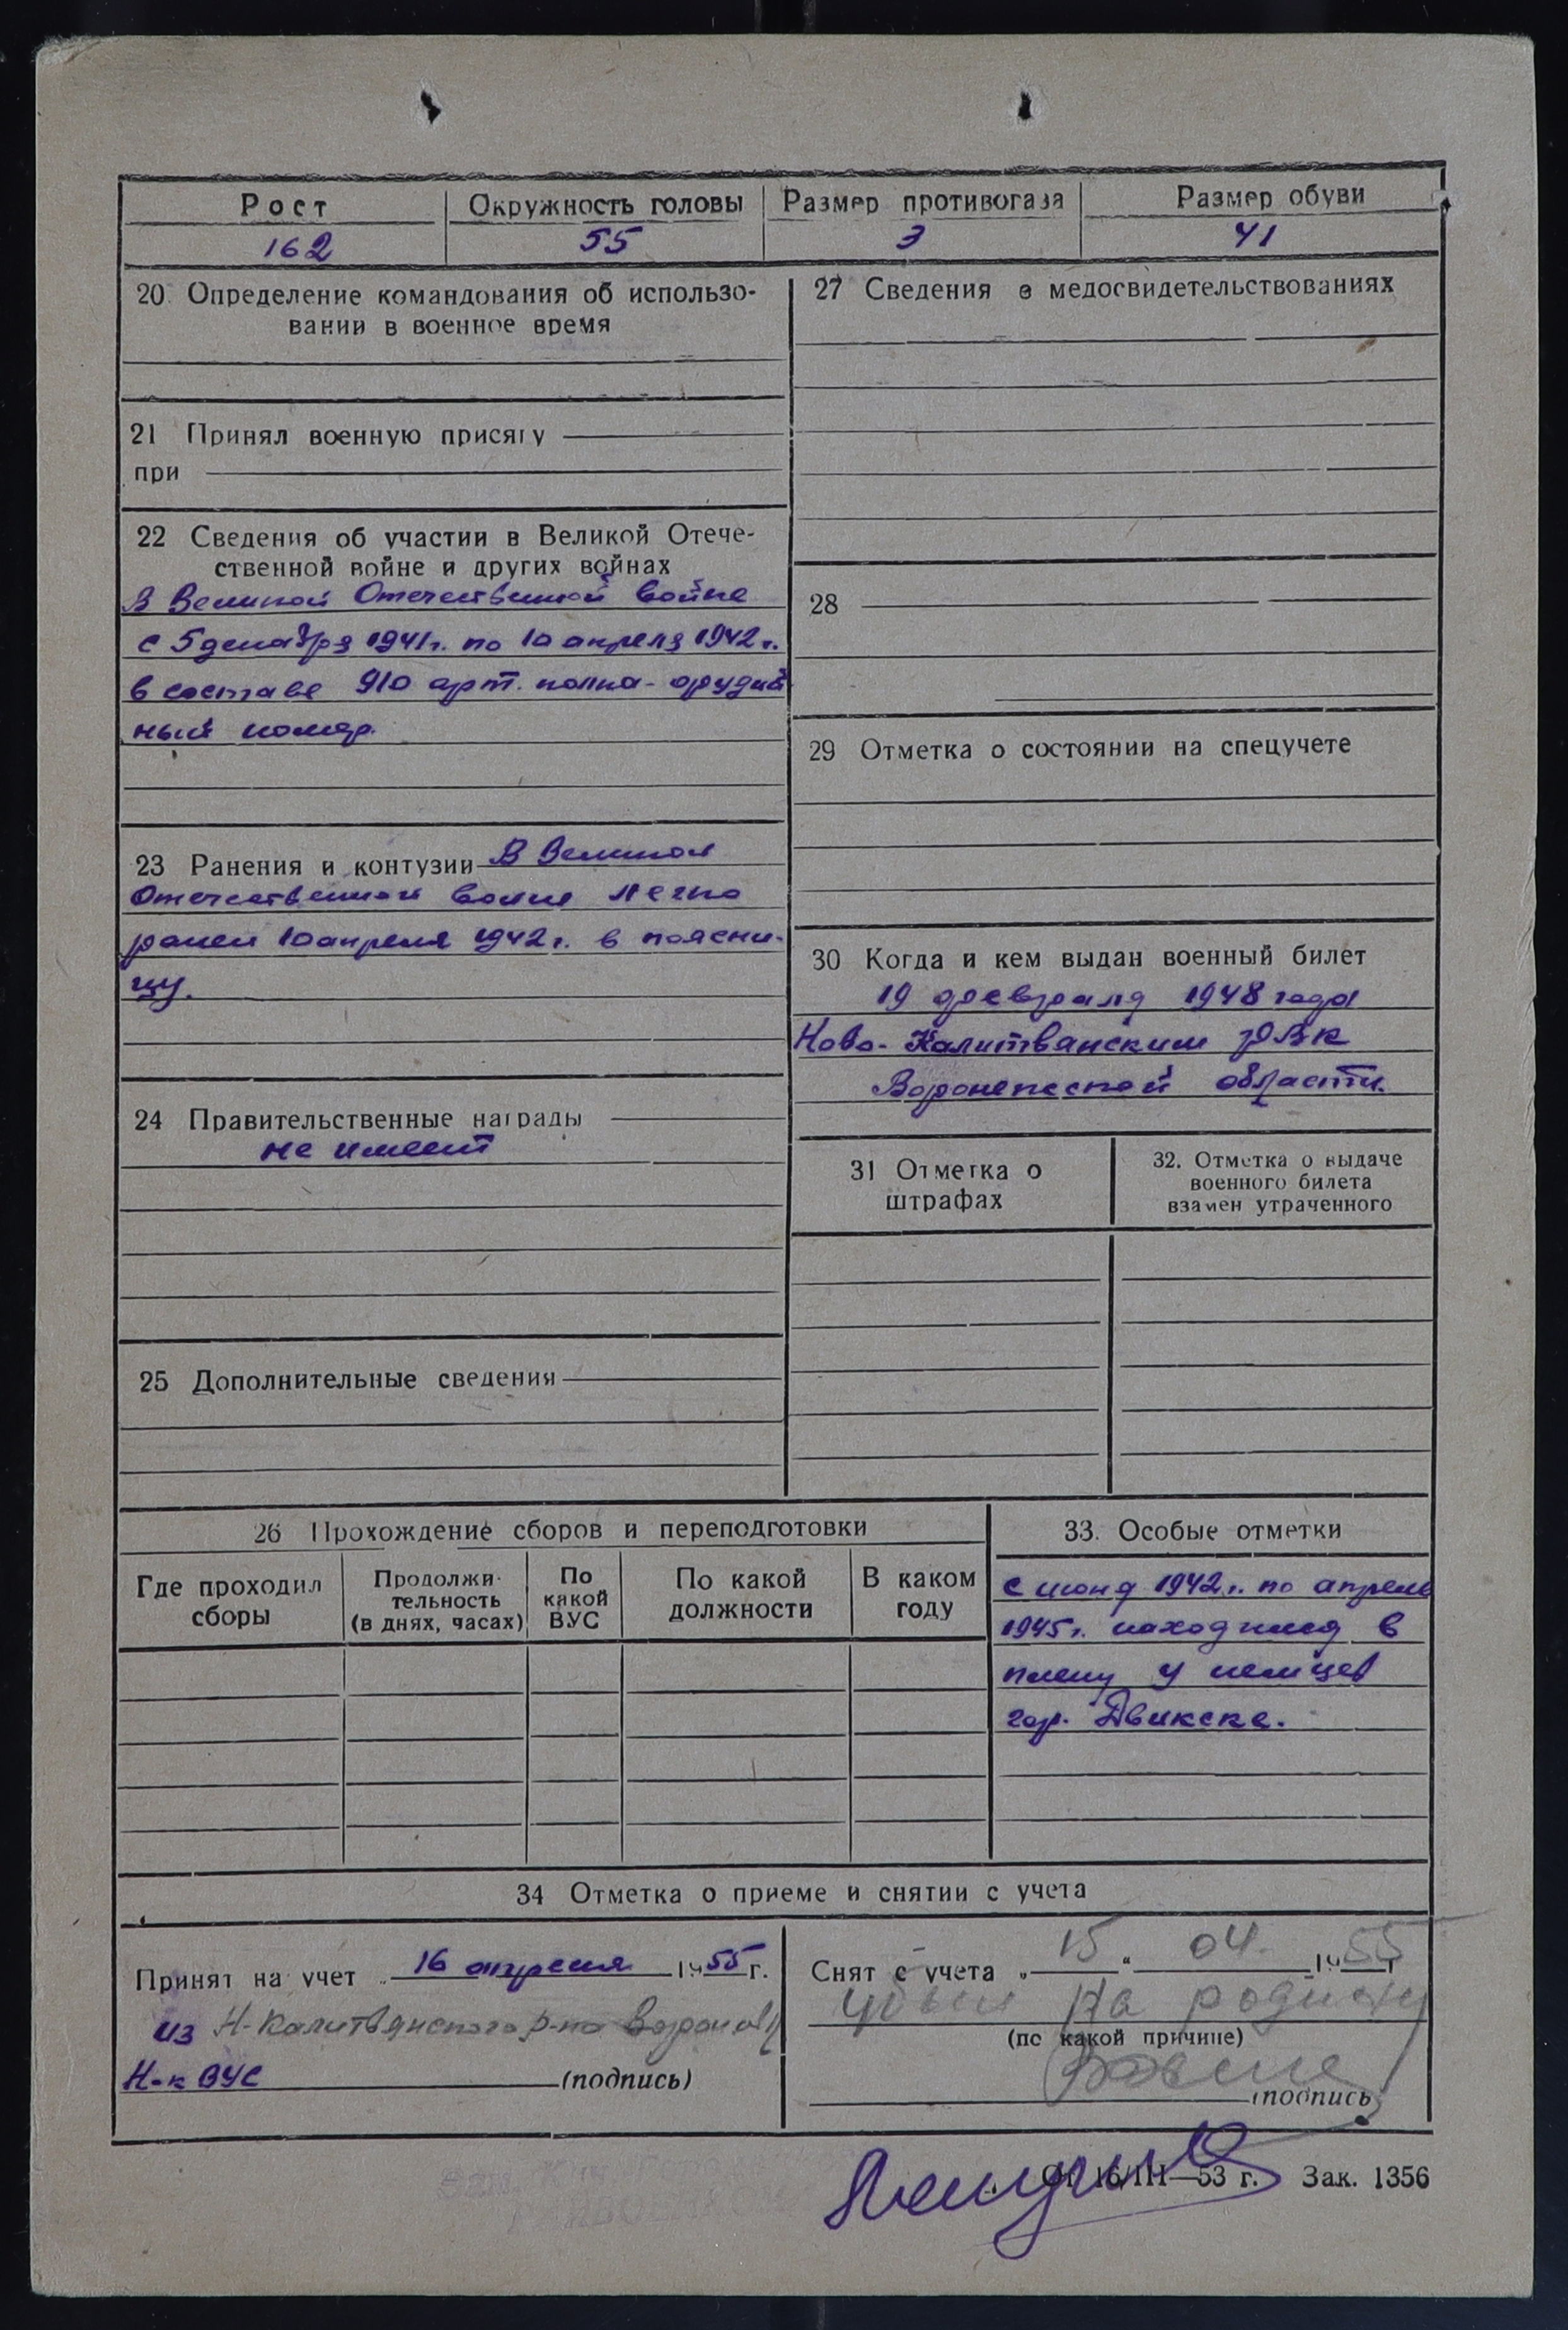 Рост Окружность головы Размер противогаза Размер обуви
162 55 3 41
20 Определение командования об использо-
вании в военное время
21 Принял военную присягу
при
22 Сведения об участии в Великой Отече-
ственной войне и других войнах
В Великой Отечественной войне
с 5 декабря 1941 г. по 10 апреля 1942 г.
в составе 910 арт. полка - орудий
ный номер.
23 Ранения и контузии В Великой
Отечественной войне легко
ранен 10 апреля 1942 г. в поясни-
цу.
24 Правительственные награды
не имеет
25 Дополнительные сведения
27 Сведения о медосвидетельствованиях
28
29 Отметка о состоянии на спецучете
30 Когда и кем выдан военный билет
19 февраля 1948 года
Ново-Калитванским РВК
Воронежской области.
31 Отметка о
штрафах
32. Отметка о выдаче
военного билета
взамен утраченного
26 Прохождение сборов и переподготовки
Где проходил
сборы
Продолжи-
тельность
(в днях, часах)
По
какой
ВУС
По какой
должности
В каком
году
33. Особые отметки
с июня 1942 г. по апрель
1945 г. находился в
плену у немцев
гор. Двинске.
34 Отметка о приеме и снятии с учета
Принят на учет „ 16 апреля 1955 г.
из Н-Калитвянского р-на
Н-к ВУС (подпись)
Снят с учета „ 15 “ 04. 1955 г
убыл на родину
(по какой причине)
(подпись)
От 16/III—53 г. Зак. 1356